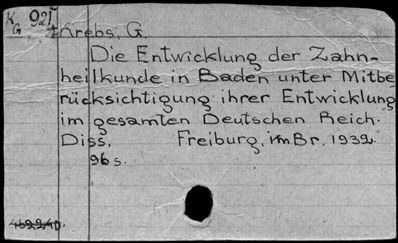 K 921
G
Krebs, G.
Die Entwicklung der Zahn-
heilkunde in Baden unter Mitbe
rücksichtigung ihrer Entwicklung
im gesamten Deutschen Reich.
Diss. Freiburg, i/m Br. 1939.
96 s.